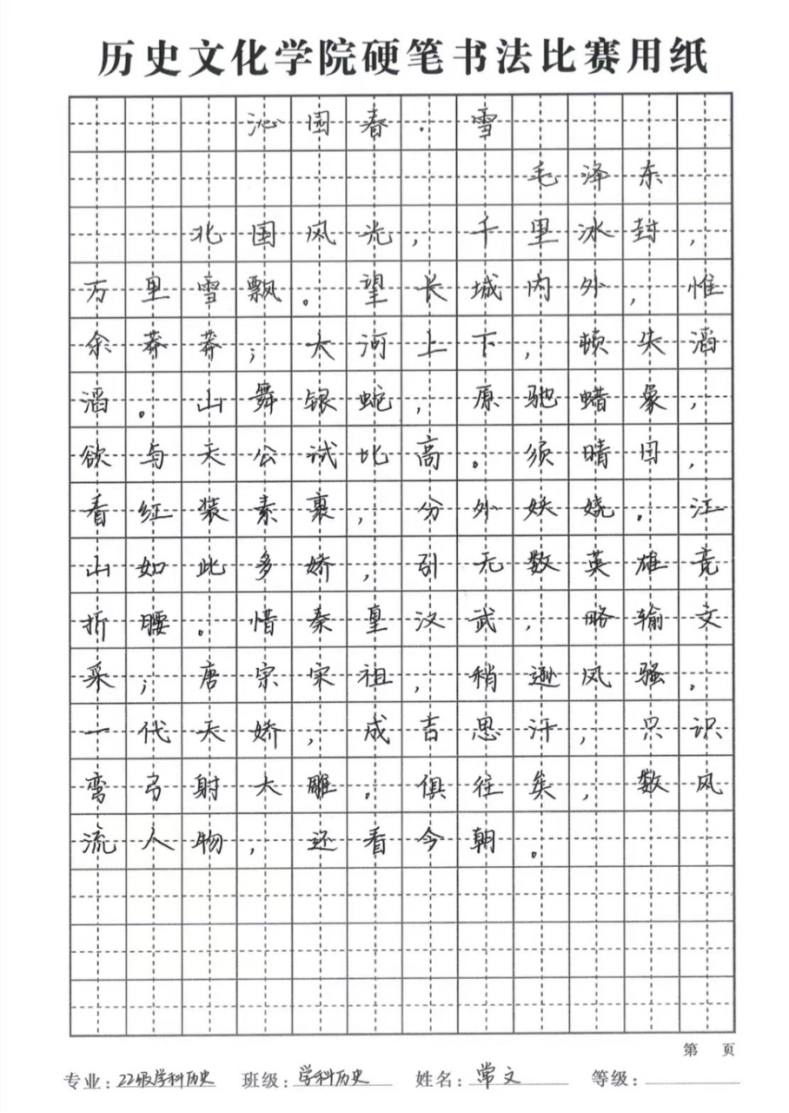 历史文化学院硬笔书法比赛用纸
沁园春·雪
毛泽东
北国风光，千里冰封，
万里雪飘。望长城内外，惟
余莽莽；大河上下，顿失滔
滔。山舞银蛇，原驰蜡象，
欲与天公试比高。须晴日，
看红装素裹，分外妖娆。江
山如此多娇，引无数英雄竞
折腰。惜秦皇汉武，略输文
采；唐宗宋祖，稍逊风骚。
一代天娇，成吉思汗，只识
弯弓射大雕。俱往矣，数风
流人物，还看今朝。
第 页
专业：22级学科历史 班级：学科历史 姓名：常文 等级：